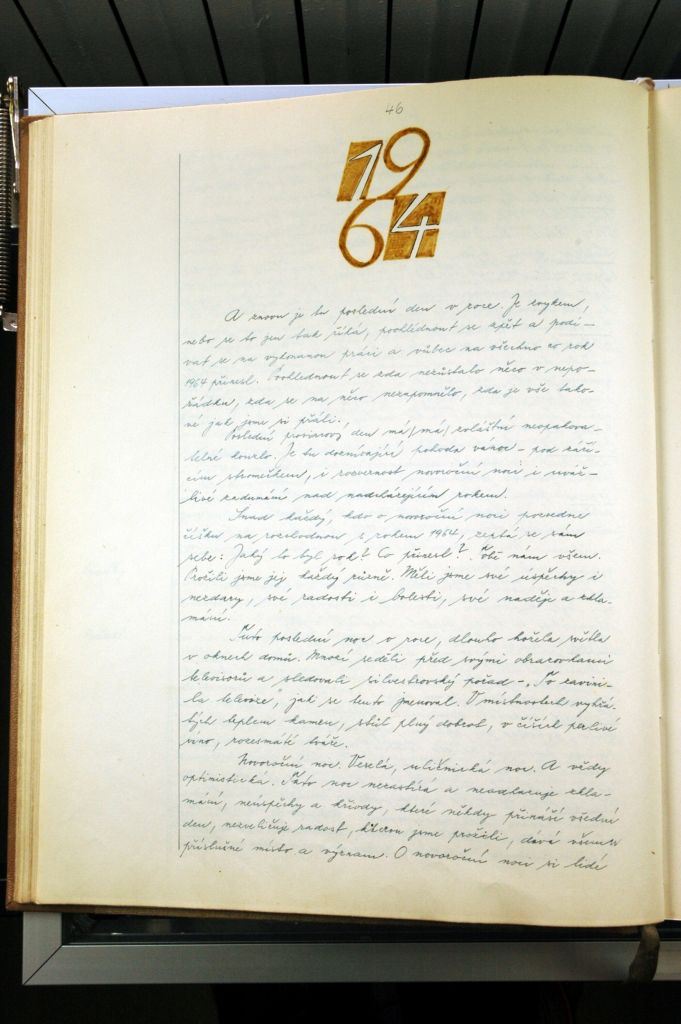 46
19
64
A znovu je tu poslední den v roce. Je zvykem,
nebo se to jen tak říká, poohlédnout se zpět a podí-
vat se na vykonanou práci a vůbec na všechno co rok
1964 přinesl. Poohlédnout se zda nezůstalo něco v nepo-
řádku, zda se na něco nezapomnělo, zda je vše tako-
né jak jsme si přáli.
Poslední prosincový den má /má/ zvláštní neopakova-
telné kouzlo. Je tu doznívající pohoda vánoc - pod záři-
cím stromečkem, i rozvernost novoroční noci i uváž-
livé zadumání nad nadcházejícím rokem.
Snad každý, kdo o novoroční noci pozvedne
číšku na rozchodnou s rokem 1964, zeptá se sám
sebe: Jaký to byl rok? Co přinesl? Tobě nám všem.
Prožili jsme jej každý různě. Měli jsme své úspěchy i
nezdary, své radosti i bolesti, své naděje a zkla-
mání.
Tuto poslední noc v roce, dlouho hořela světla
v oknech domů. Mnozí seděli před svými obrazovkami
televizorů a sledovali silvestrovský pořad - "To zavini-
la televize", jak se tento jmenoval. V místnostech vyhřá-
tých teplem kamen, stůl plný dobrot, v číších perlivé
víno, rozesmáté tváře.
Novoroční noc. Veselá, uličnická noc. A vždy
optimistická. Tato noc nezastírá a neodstraňuje zkla-
mání, neúspěchy a křivdy, které někdy přináší všední
den, nezveličuje radost, kterou jsme prožili, dává všemu
příslušné místo a význam. O novoroční noci si lidé